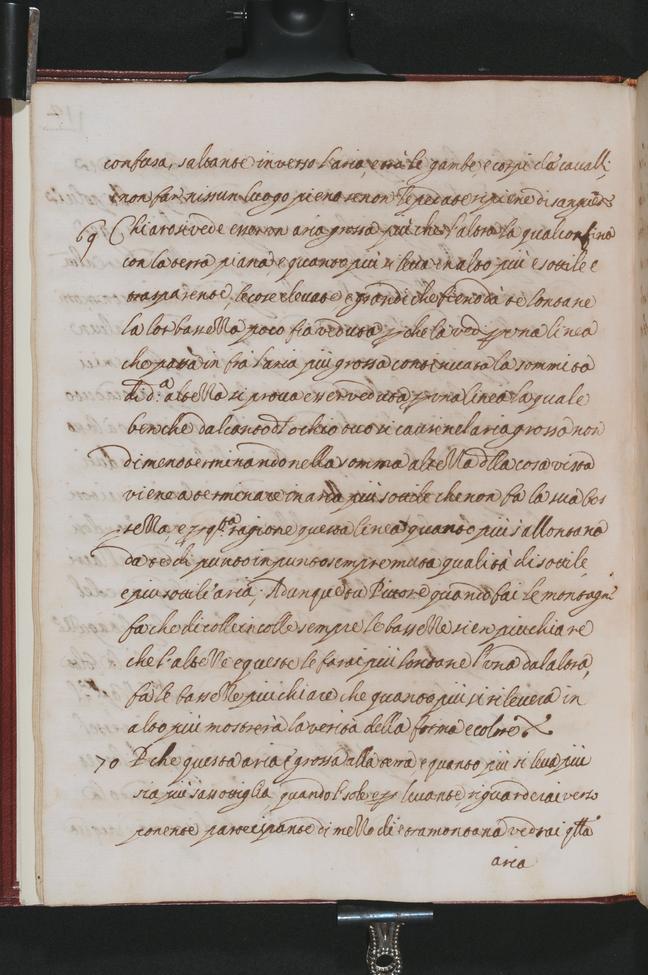 confusa, saltante inverso l'aria, e tra le gambe e corpi de cavalli
non far nissun luogo pieno se non le pedate ripiene di sangue
69 Chiaro si vede esser un aria grossa più che l'altra la qual confina
con la terra piana e quanto più si leva in alto più è sottile e
trasparente, le cose elevate e grandi che fieno da te lontane
la lor bassezza poco fia veduta perche la vedi per una linea
che passa in fra l'aria più grossa continuata la sommità
di d.ª altezza si prova esser veduta per una linea la quale
benche dal canto dl ochio tuo si causi nel aria grossa non
dimeno terminando nella somma altezza dlla cosa vista
viene a terminare in aria più sottile che non fa la sua bas
sezza, e per qsta ragione questa linea quanto più s'allontana
da te di punto in punto sempre muta qualità di sottile
e più sottile aria; Adunque tu Pittore quando fai le montagne
fa che di colle in colle sempre le bassezze sien piu chiare
che l'altezze e queste le farai più lontane l'una dal altra,
fa le bassezze piu chiare che quanto più si rileverà in
alto più mostrerà la verità della forma e colore
70 Pche questa aria è grossa alla terra e quanto più si leva più
sia più s'assottiglia quando l sole e per levante riguarderai verso
ponente partecipante di mezzo dì e tramontana vedrai qlla
aria